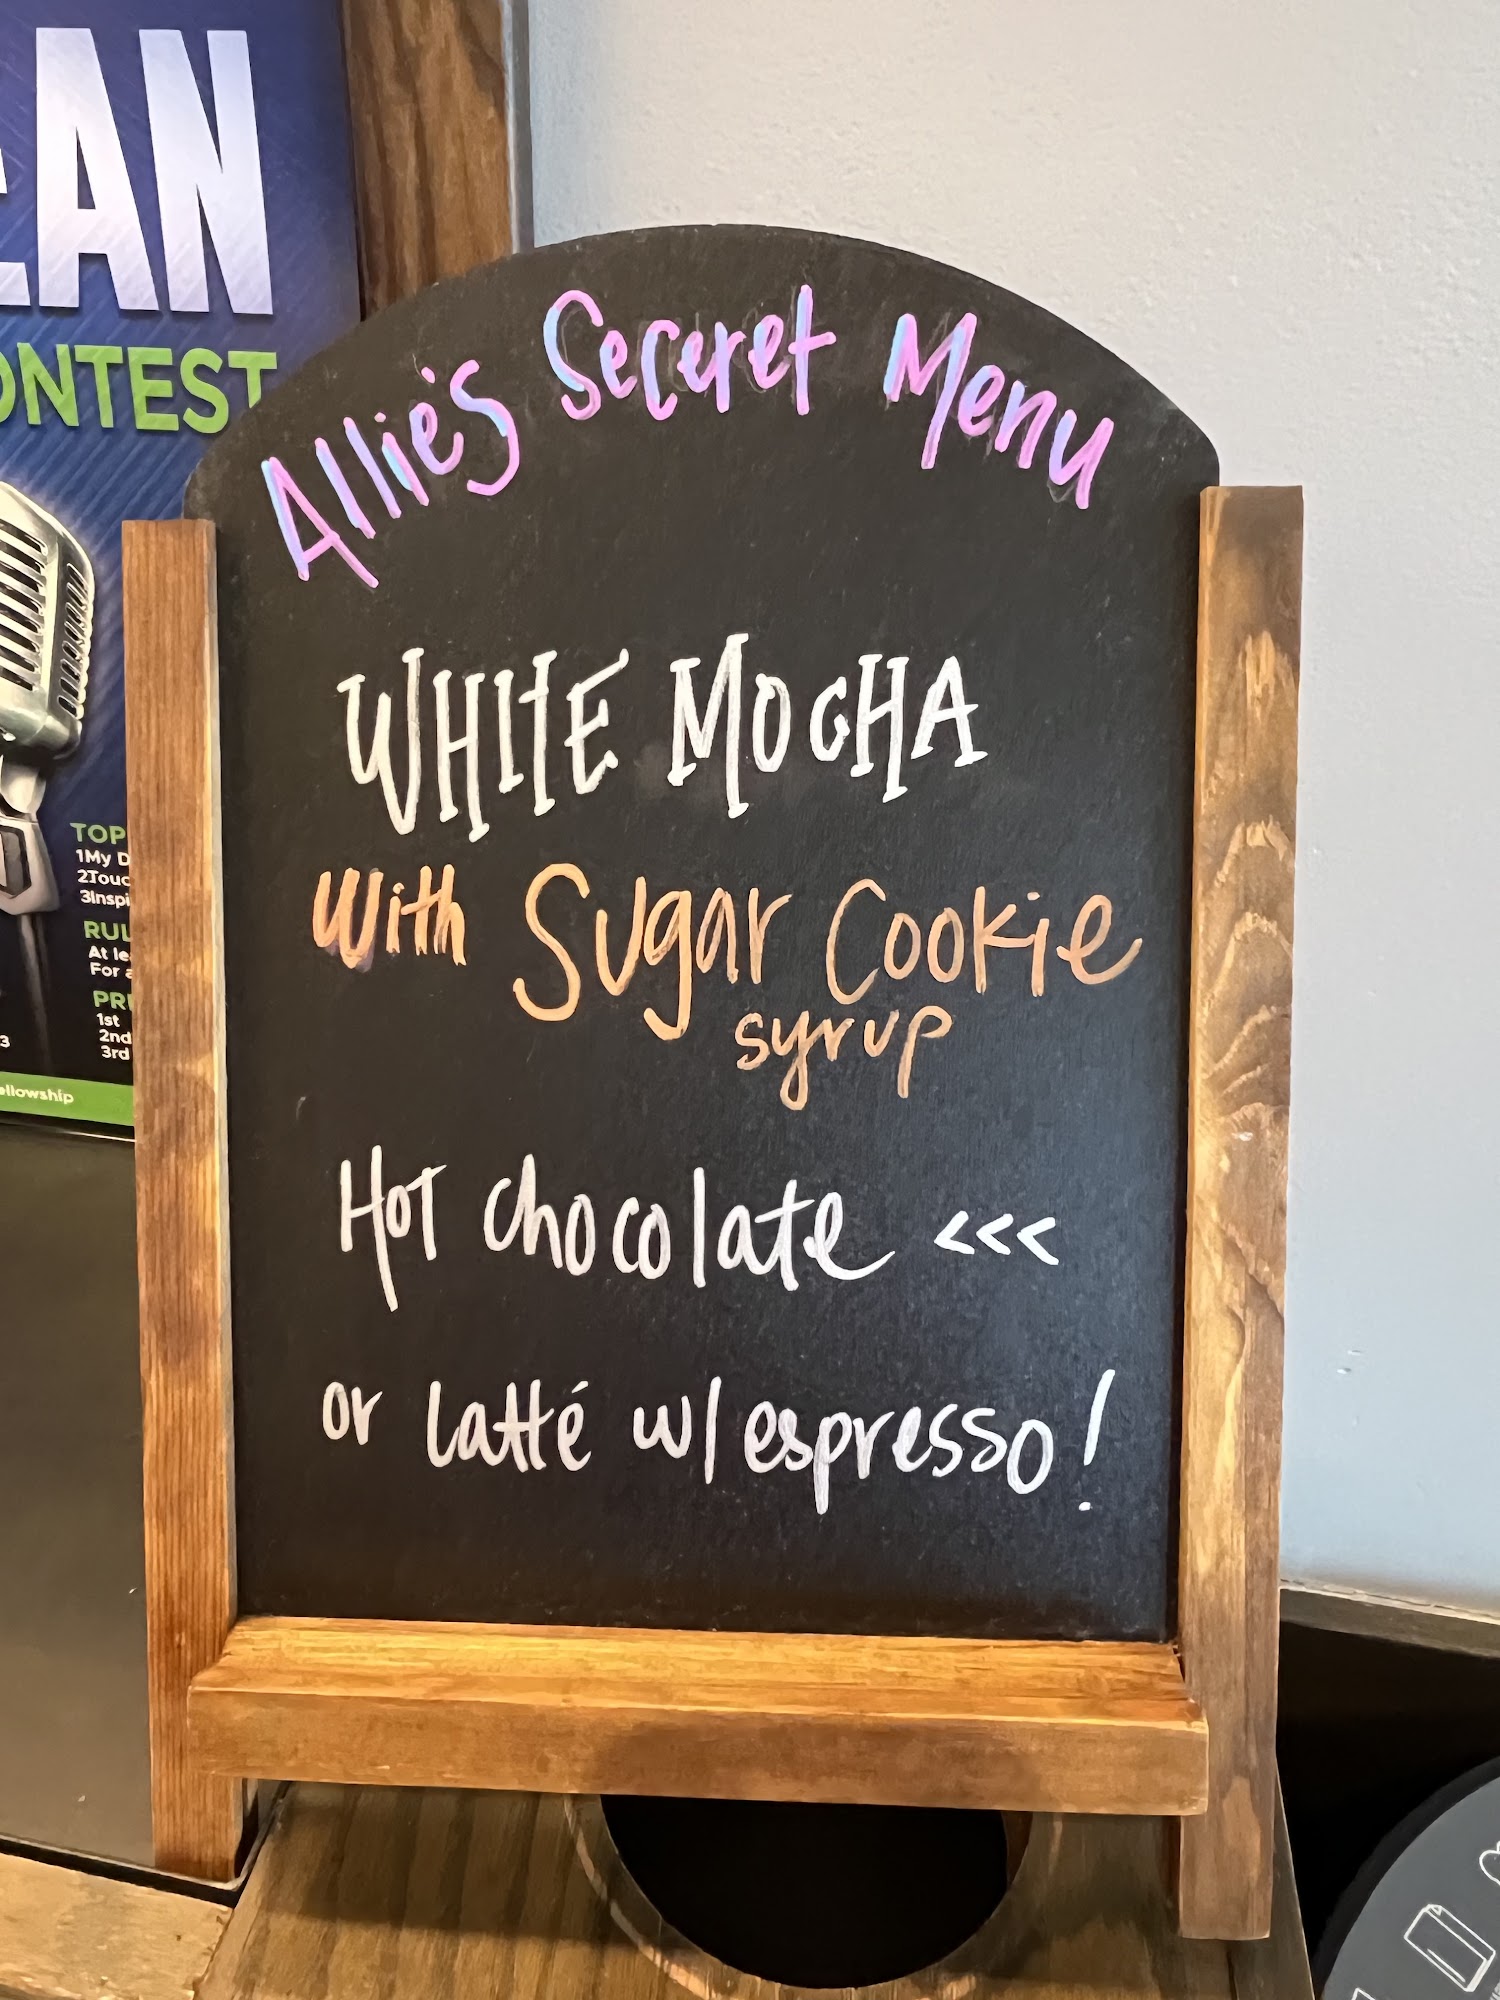 EAN
ONTEST
TOP
1My D
2Touc
3Inspi
RUL
At lea
For a
PRI
1st
2nd
3rd
3
ellowship
Allie's Seceret Menu
WHITE MOCHA
With Sugar Cookie
syrup
Hot chocolate <<<
or Latté w/ espresso!